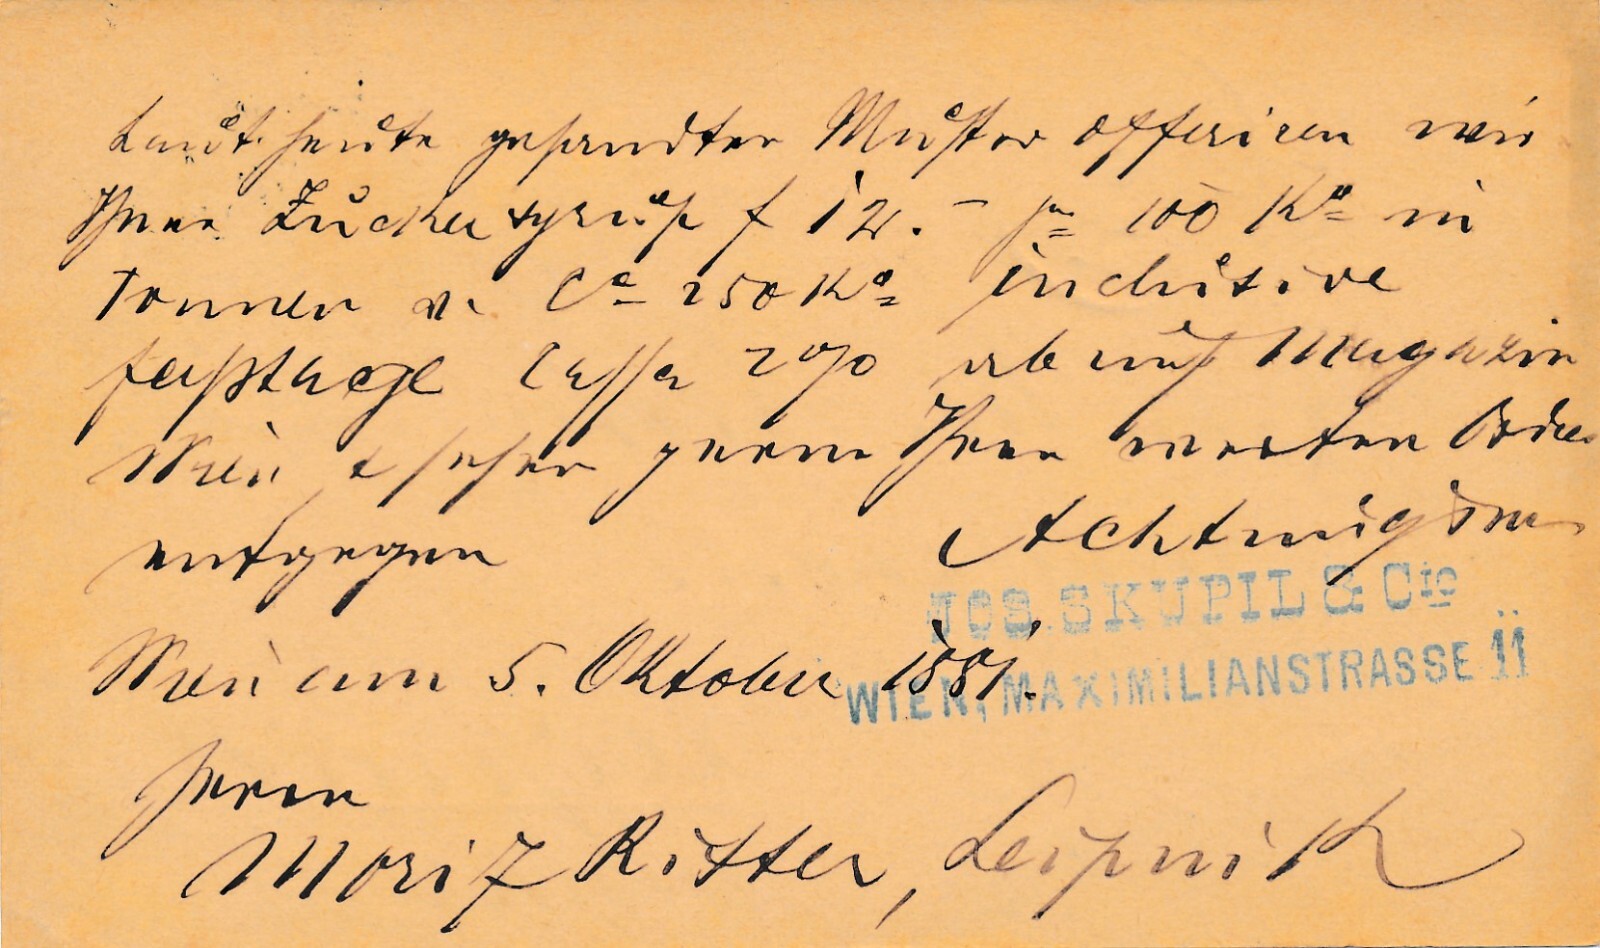 Laut heute gesandten Muster offeriren wir
Ihnen Zuckersyrup f 12.– pr 100 Ko in
Tonnen v. Ca 250 Ko inclusive
fasstage Cassa 2% ab auf Magazin
Wien & sehen gern Ihren werten Ordres
entgegen Achtungsvoll
JOS. SKUPIL & Cie
WIEN, MAXIMILIANSTRASSE 11
Wien am 5. Oktober 1881.
Herrn
Moriz Ritter, Leipnik